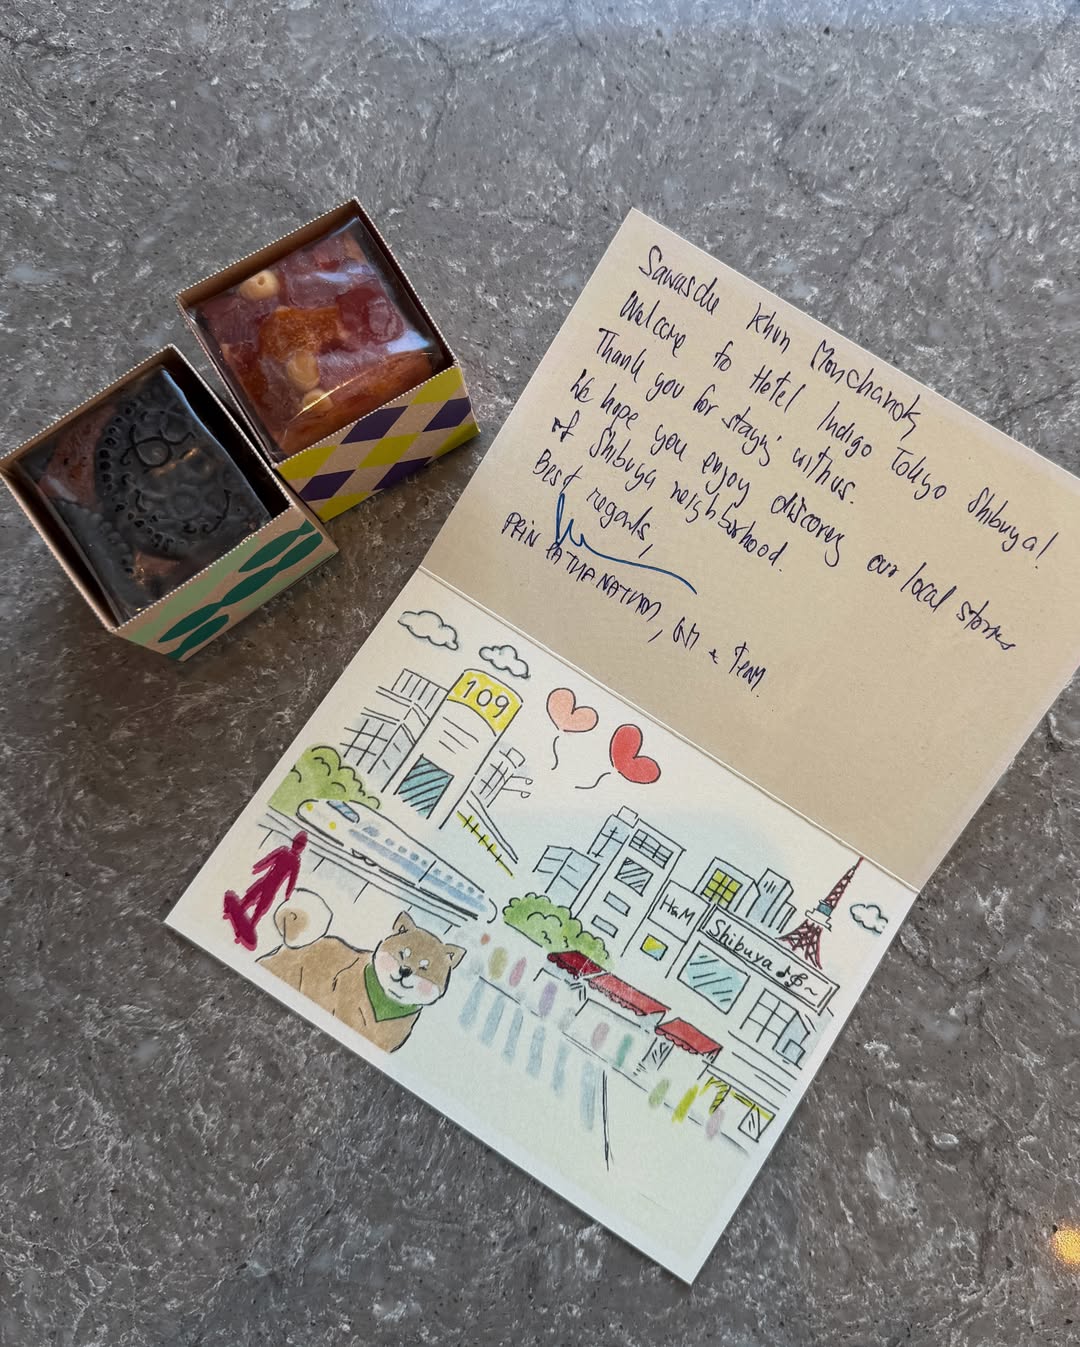 Sawasdee Khun Monchanok
Welcome to Hotel Indigo Tokyo Shibuya!
Thank you for staying with us.
We hope you enjoy discovery our local stories
of Shibuya neighborhood.
Best regards,
PRIN PATHANATHAM, GM & Team.
109
H&M
Shibuya